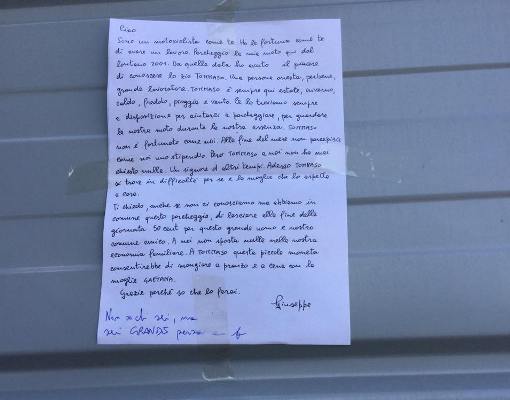 Ciao
Sono un motociclista come te. Ho la fortuna come te
di avere un lavoro. Parcheggio la mia moto qui dal
lontano 2001. Da quella data ho avuto il piacere
di conoscere lo zio TOMMASO. Una persona onesta, perbene,
grande lavoratore. TOMMASO è sempre qui estate, inverno,
caldo, freddo, pioggia e vento. Ce lo troviamo sempre
a disposizione per aiutarci a parcheggiare, per guardare
la nostra moto durante la nostra assenza. TOMMASO
non è fortunato come noi. Alla fine del mese non percepisce
come noi uno stipendio. Però TOMMASO a noi non ha mai
chiesto nulla. Un signore d'altri tempi. Adesso TOMMASO
si trova in difficoltà per se e la moglie che lo aspetta
a casa.
Ti chiedo, anche se non ci conosciamo ma abbiamo in
comune questo parcheggio, di lasciare alla fine della
giornata 50 cent per questo grande uomo e nostro
comune amico. A noi non sposta nulla nella nostra
economia familiare. A TOMMASO questa piccola moneta
consentirebbe di mangiare a pranzo e a cena con la
moglie GAETANA.
Grazie perché so che lo farai.
Giuseppe
Non so chi sei, ma
sei GRANDE